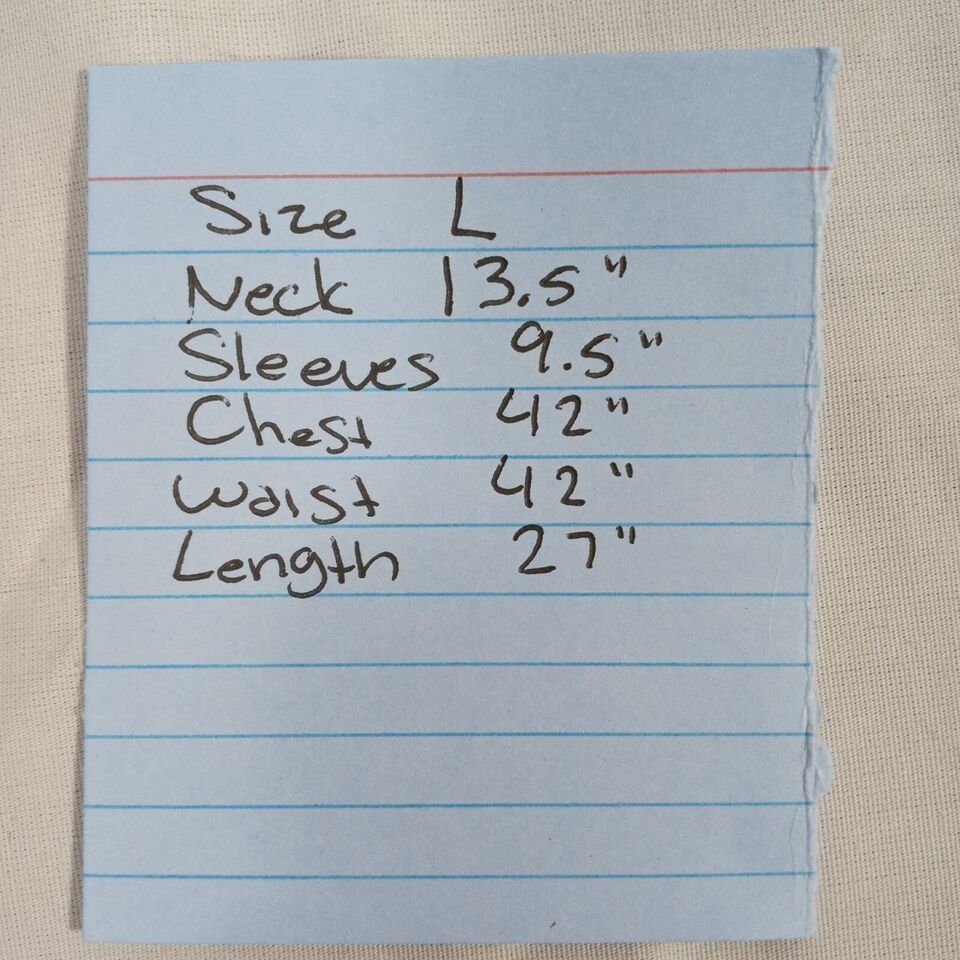 Size L
Neck 13.5"
Sleeves 9.5"
Chest 42"
Waist 42"
Length 27"